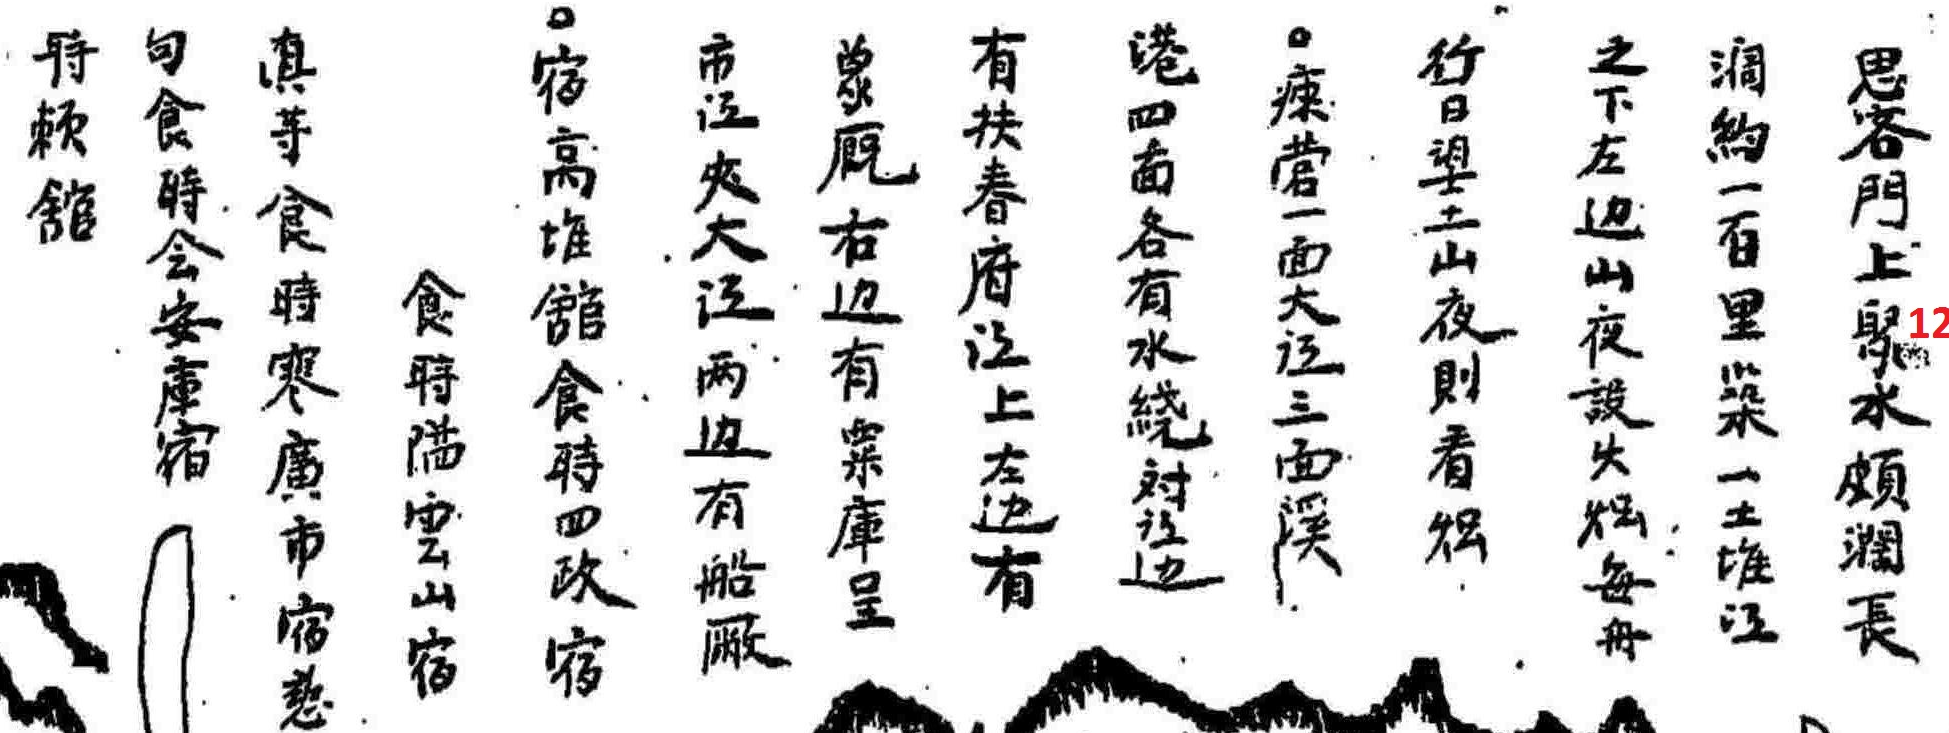 思容門上聚水頗瀾長
濶約一百里築一土堆江
之下左边山夜設火烟每舟
行日望土山夜則看烟
瘐營一面大江三面溪
港四面各有水繞対江边
有扶春府江上左边有
象厩右边有粟庫呈
市江夾大江两边有船厰
宿高堆舘食時四政宿
食時隘雲山宿
真等食時寒廣市宿
句食時会安庫宿
時頼舘
12